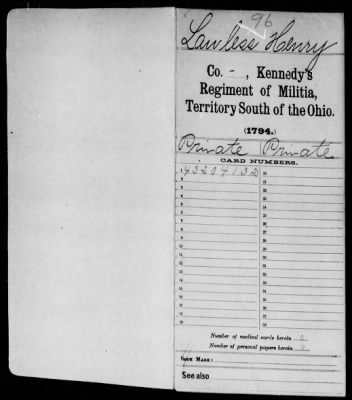 96
Lawless Henry
Co. - , Kennedy's
Regiment of Militia,
Territory South of the Ohio.
(1794.)
Private Private
CARD NUMBERS.
1 43204132
Number of medical cards herein 0
Number of personal papers herein 0
BOOK MARK:
See also